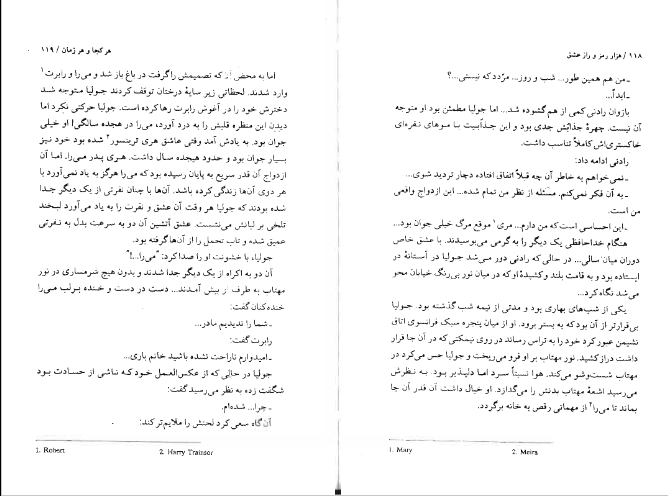 ۱۱۸ / هزار رمز و راز عشق
ـ من هم همین طور... شب و روز... مرّدد که نیستی...؟
ـ ابداً...
بازوان رادنی کمی از هم گشوده شد... اما جولیا مطمئن بود او متوجه
آن نیست. چهرهٔ جذابش جدی بود و این جذابیت با موهای نقره‌ای
خاکستری‌اش کاملاً تناسب داشت.
رادنی ادامه داد:
ـ نمی‌خواهم به خاطر آن چه قبلاً اتفاق افتاده دچار تردید شوی...
ـ به آن فکر نمی‌کنم. مسئله از نظر من تمام شده... این ازدواج واقعی
من است.
ـ این احساسی است که من دارم... مری۱ موقع مرگ خیلی جوان بود...
هنگام خداحافظی یک دیگر را به گرمی می‌بوسیدند. با عشق خاص
دوران میان‌سالی... در حالی که رادنی دور می‌شد جولیا در آستانهٔ در
ایستاده بود و به قامت بلند و کشیدهٔ او که در میان نور بی‌رنگ خیابان محو
می‌شد نگاه کرد...
یکی از شب‌های بهاری بود و مدتی از نیمه شب گذشته بود. جولیا
بی‌قرارتر از آن بود که به بستر برود. او از میان پنجره سبک فرانسوی اتاق
نشیمن عبور کرد خود را به تراس رساند در روی نیمکتی که در آن جا قرار
داشت دراز کشید. نور مهتاب بر او فرو می‌ریخت و جولیا حس می‌کرد در
مهتاب شست‌وشو می‌کند. هوا نسبتاً سرد اما دلپذیر بود. به نظرش
می‌رسید اشعهٔ مهتاب بدنش را می‌گدازد. او خیال داشت آن قدر آن جا
بماند تا می‌را۲ از مهمانی رقص به خانه برگردد.
1. Mary 2. Meira
هر کجا و هر زمان / ۱۱۹
اما به محض آن که تصمیمش را گرفت در باغ باز شد و می‌را و رابرت۱
وارد شدند. لحظاتی زیر سایهٔ درختان توقف کردند جولیا متوجه شد
دخترش خود را در آغوش رابرت رها کرده است. جولیا حرکتی نکرد اما
دیدن این منظره قلبش را به درد آورد، می‌را در هجده سالگی! او خیلی
جوان بود. به یادش آمد وقتی عاشق هری ترینسور۲ شده بود خود نیز
بسیار جوان بود و حدود هیجده سال داشت. هری پدر می‌را. اما آن
ازدواج آن قدر سریع به پایان رسیده بود که می‌را هرگز به یاد نمی‌آورد با
هر دوی آن‌ها زندگی کرده باشد. آن‌ها با چنان نفرتی از یک دیگر جدا
شده بودند که جولیا هر وقت آن عشق و نفرت را به یاد می‌آورد لبخند
تلخی بر لبانش می‌نشست. عشق آتشین آن دو به سرعت بدل به نفرتی
عمیق شده و تاب تحمل را از آن‌ها گرفته بود.
جولیا، با خشونت او را صدا کرد: "می‌را...!"
آن دو به اکراه از یک دیگر جدا شدند و بدون هیچ شرمساری در نور
مهتاب به طرف او پیش آمدند... دست در دست و خنده بر لب می‌را
خنده‌کنان گفت:
ـ شما را ندیدیم مادر...
رابرت گفت:
ـ امیدوارم ناراحت نشده باشید خانم باری...
جولیا در حالی که از عکس‌العمل خود که ناشی از حسادت بود
شگفت زده به نظر می‌رسید گفت:
ـ چرا... شده‌ام.
آن‌گاه سعی کرد لحنش را ملایم‌تر کند:
1. Robert 2. Harry Trainsor